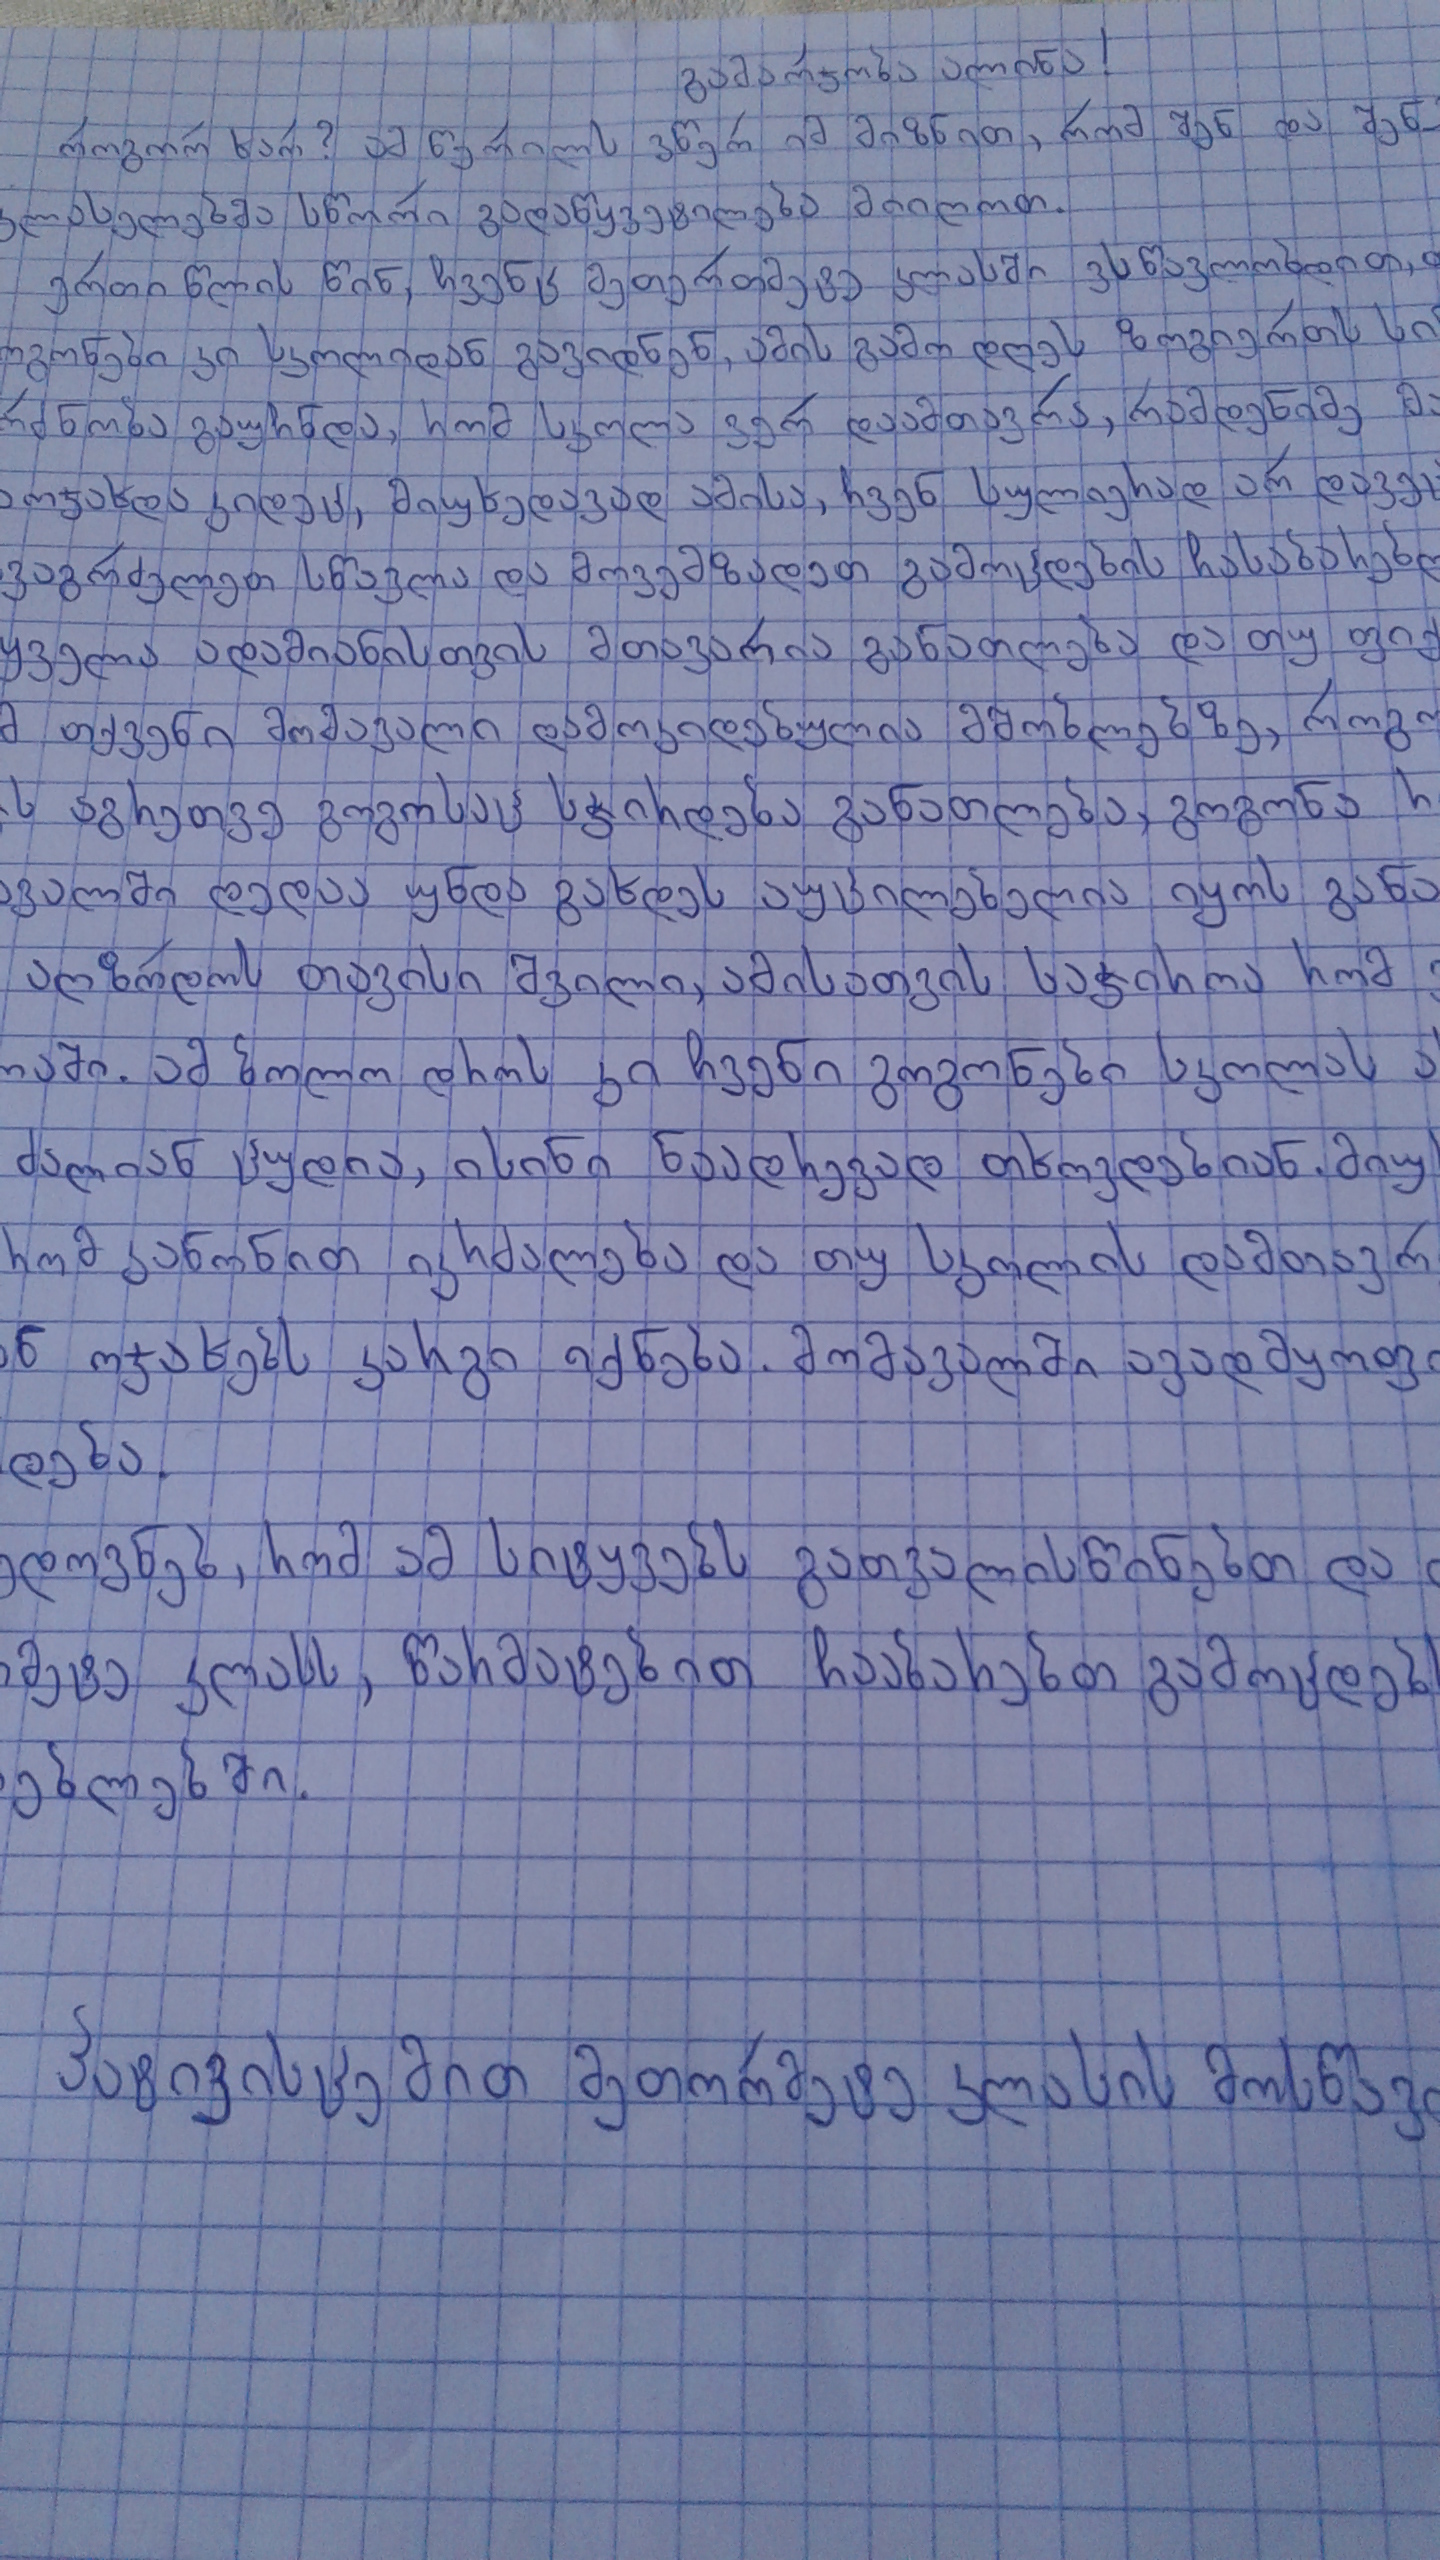 გამარჯობა ალინა!
როგორ ხარ? ამ წერილს ვწერ იმ მიზნით, რომ შენ და შენ-
კლასელებმა სწორი გადაწყვეტილება მიიღოთ.
ერთი წლის წინ, ჩვენც მეთერთმეტე კლასში ვსწავლობდით,
ოგონები კი სკოლიდან გავიდნენ, ამის გამო დღეს ზოგიერთს სი
რძნობა გაუჩნდა, რომ სკოლა ვერ დაამთავრა, რამდენიმე მა
ოჯახდა კიდეც, მიუხედავად ამისა, ჩვენ სულიერად არ დავეც
ვაგრძელეთ სწავლა და მოვემზადეთ გამოცდების ჩასაბარებლ
ყველა ადამიანისთვის მთავარია განათლება და თუ ფიქ
მ თქვენი მომავალი დამოკიდებულია მშობლებზე, როგო
ს აგრეთვე გოგოსაც სჭირდება განათლება, გოგონა რ
ავალში დედაა უნდა გახდეს აუცილებელია იყოს განა
აღზრდოს თავისი შვილი, ამისათვის საჭიროა რომ
ოაში. ამ ბოლო დროს კი ჩვენი გოგონები სკოლას ა
ძალიან ცუდია, ისინი ნაადრევად თხოვდებიან. მიუ
რომ კანონით იკრძალება და თუ სკოლის დამთავრ
ან ოჯახებს კარგი იქნება. მომავალში ავადმყოფ
დება.
ედოვნებ, რომ ამ სიტყვებს გათვალისწინებთ და
მეტე კლასს, წარმატებით ჩააბარებთ გამოცდებს
ებლებში.
პატივისცემით მეთორმეტე კლასის მოსწავ